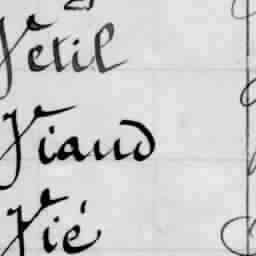 Vétil
Viaud
Vié